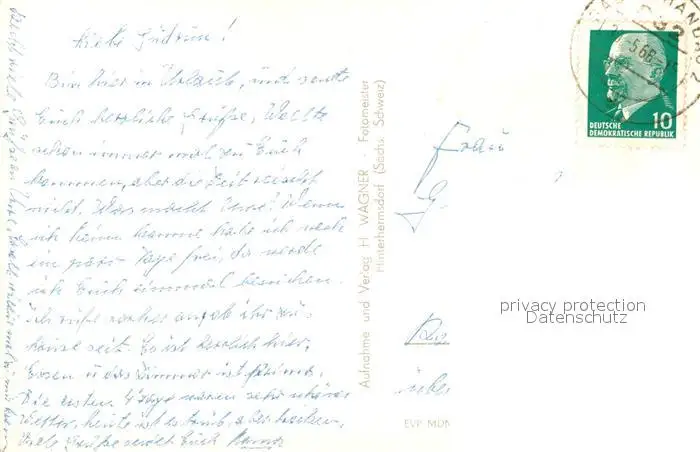 Liebe Gudrun!
Bin hier in Urlaub, und sende
Euch herzliche Grüße, Wollte
schon immer mal zu Euch
kommen, aber die Zeit reicht
nicht. Was macht Uwe? Wenn
ich heim komme habe ich noch
ein paar Tage frei, da werde
ich Euch einmal besuchen.
Ich rufe vorher an, ob ihr zu
hause seit. Es ist herrlich hier,
Essen u das Zimmer ist prima.
Die ersten 4 Tage waren sehr schönes
Wetter, heute ist es trüb, aber trocken,
Viele Grüße sendet Euch
Aufnahme und Verlag H. WAGNER Fotomeister
Hinterhermsdorf (Sächs. Schweiz)
Frau
G.
über
EVP MDN
10
DEUTSCHE
DEMOKRATISCHE REPUBLIK
privacy protection
Datenschutz